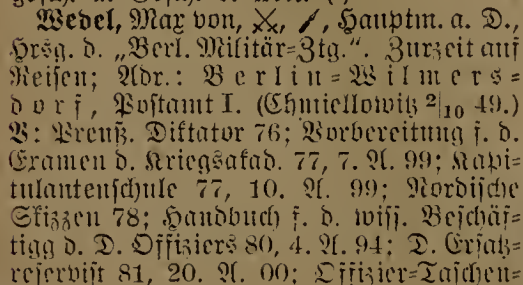 Wedel, Max von, ⚔, /, Hauptm. a. D.,
Hrsg. d. „Berl. Militär=Ztg.“. Zurzeit auf
Reisen; Adr.: Berlin=Wilmers=
dorf, Postamt I. (Chmiellowitz 2/10 49.)
V: Preuß. Diktator 76; Vorbereitung f. d.
Examen d. Kriegsakad. 77, 7. A. 99; Kapi=
tulantenschule 77, 10. A. 99; Nordische
Skizzen 78; Handbuch f. d. wiss. Beschäf=
tigg d. D. Offiziers 80, 4. A. 94; D. Ersatz=
reservist 81, 20. A. 00; Offizier=Taschen=